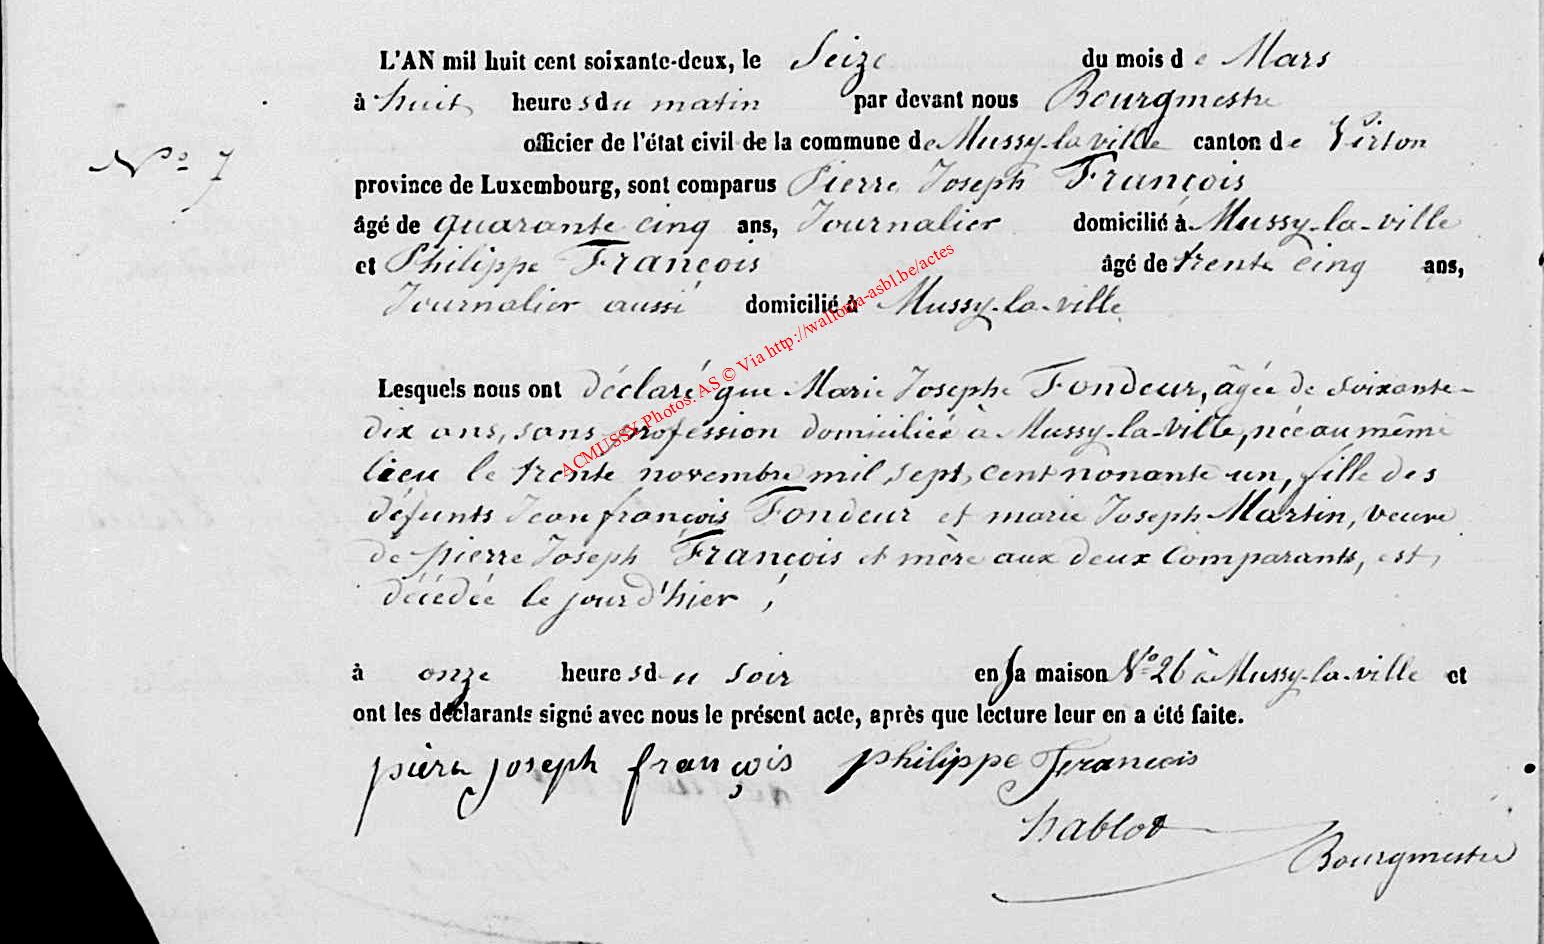 L'AN mil huit cent soixante-deux, le Seize du mois de Mars
à huit heures du matin par devant nous Bourgmestre
officier de l'état civil de la commune de Mussy-la-ville canton de Virton
N° 7
province de Luxembourg, sont comparus Pierre Joseph François
âgé de quarante cinq ans, Journalier domicilié à Mussy-la-ville
et Philippe François âgé de trente cinq ans,
Journalier aussi domicilié à Mussy-la-ville
ACMUSSY Photos: AS © Via http://wallonia-asbl.be/actes
Lesquels nous ont déclaré que Marie Josephe Fondeur, âgée de soixante-
dix ans, sans profession domiciliée à Mussy-la-Ville, née au même
lieu le trente novembre mil sept cent nonante un, fille des
défunts Jean françois Fondeur et marie Joseph Martin, veuve
de pierre Joseph François et mère aux deux Comparants, est
décédée le jour d'hier,
à onze heures du soir en sa maison N° 26 à Mussy-la-ville et
ont les déclarants signé avec nous le présent acte, après que lecture leur en a été faite.
pière joseph françois philippe Francois
hablot
Bourgmestre